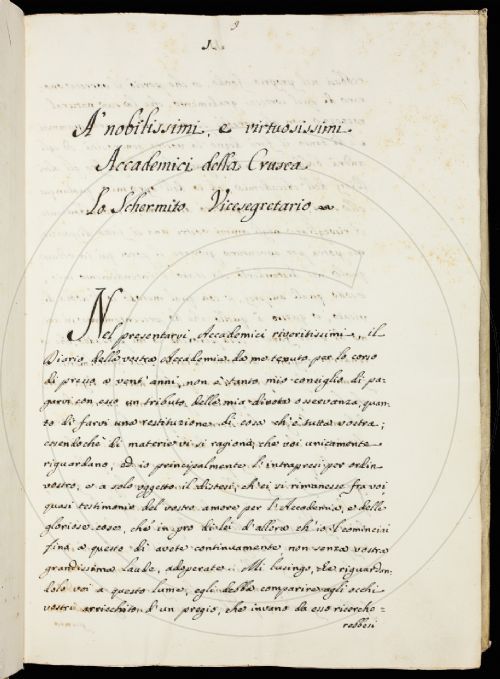 9
1.
A' nobilissimi, e virtuosissimi
Accademici della Crusca
Lo Schermito Vicesegretario
Nel presentarvi, Accademici riveritissimi, il
Diario della vostra Accademia da me tenuto per lo corso
di presso a vent' anni, non è tanto mio consiglio di pa-
garvi con esso un tributo della mia divota osservanza, quan-
to di farvi una restituzione di cosa ch' è tutta vostra;
essendochè di materie vi si ragiona, che voi unicamente
riguardano, ed io principalmente l' intrapresi per ordin
vostro, e a solo oggetto il distesi, ch' ei si rimanesse fra voi
quasi testimonio del vostro amore per l' Accademia, e delle
gloriose cose, che in pro di lei d' allora ch' io l' comincia
fino a questo dì avete continuamente non senza vostra
grandissima laude, adoperate. Mi lusingo, che riguardan-
dolo voi a questo lume, egli debba comparire agli occhi
vostri arricchito d' un pregio, che invano da esso ricerche-
rebbesi